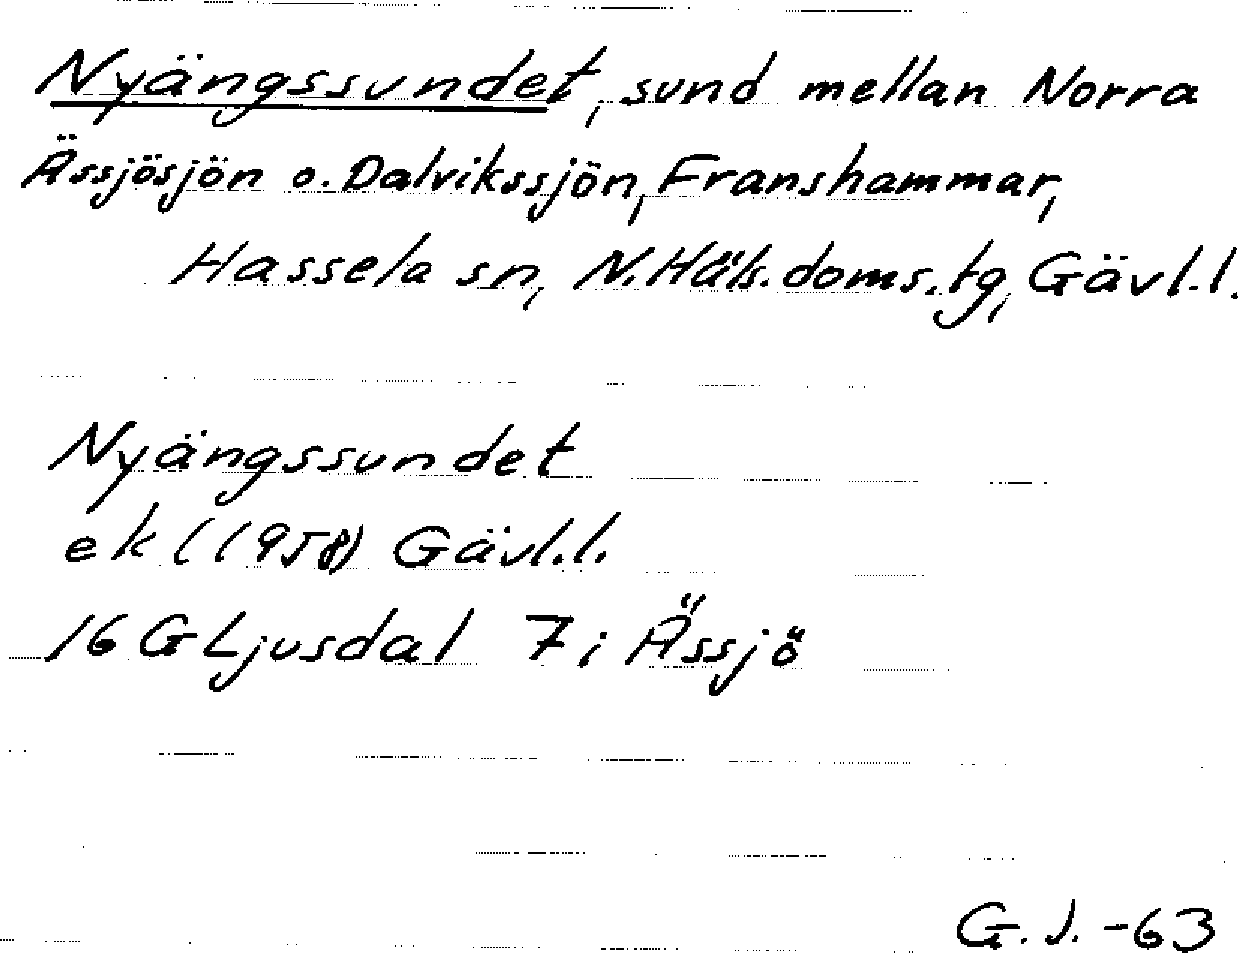 Nyängssundet, sund mellan Norra
Ässjösjön o. Dalvikssjön, Franshammar,
Hassela sn, N. Häls. doms. tg, Gävl. l.
Nyängssundet
ek (1958) Gävl. l.
16 G Ljusdal 7 i Ässjö
G. J. -63